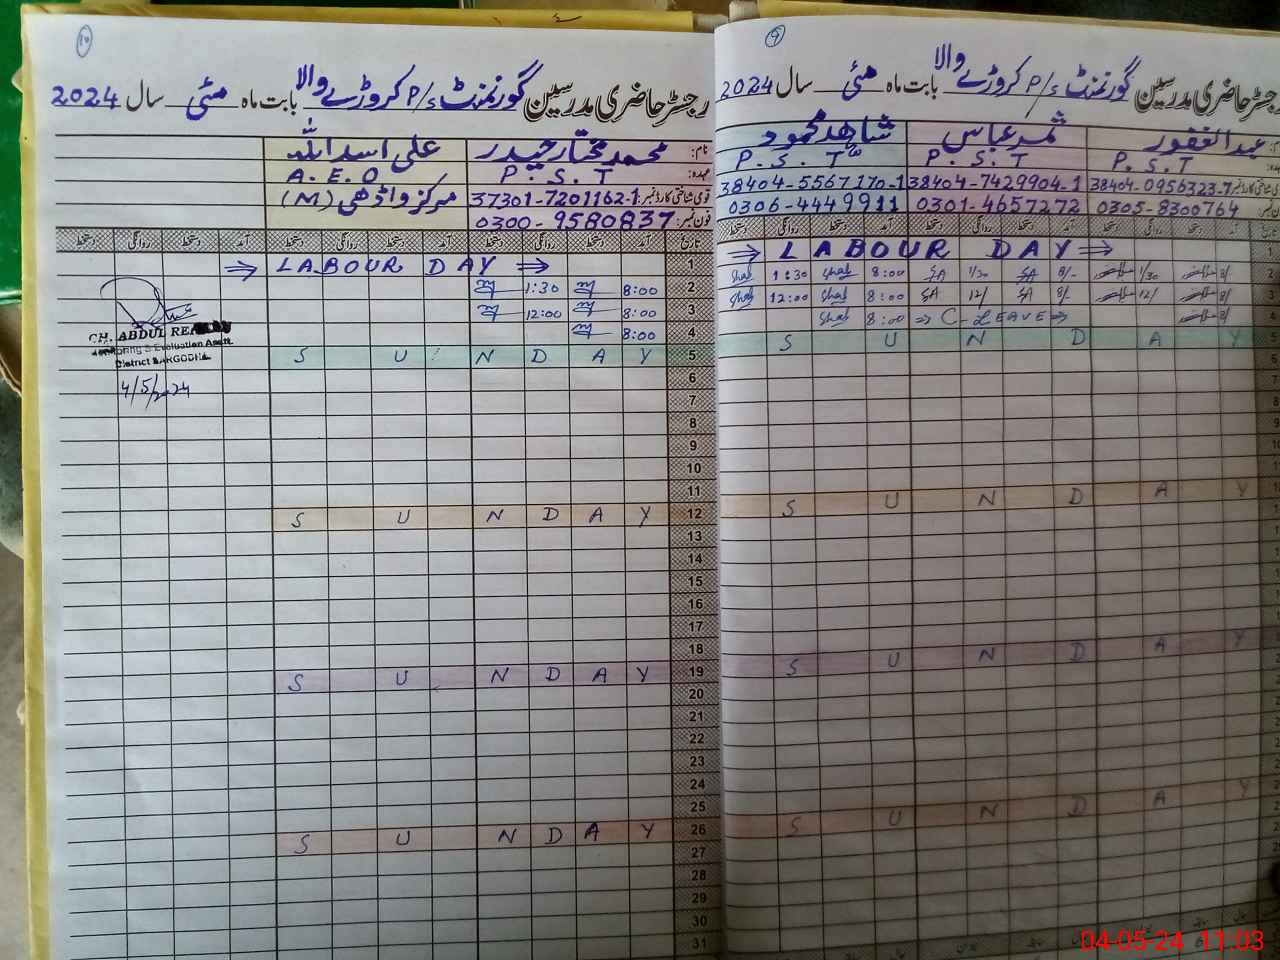 ۱۰
رجسٹر حاضری مدرسین گورنمنٹ P/S کروڑے والا بابت ماہ مئی سال 2024
نام: محمد مختار حیدر علی اسد اللہ
عہدہ: P.S.T A.E.O
قومی شناختی کارڈ نمبر: 37301-7201162-1 مرکز واڈھی (M)
فون نمبر: 0300-9580837
تاریخ آمد دستخط روانگی دستخط آمد دستخط روانگی دستخط آمد دستخط روانگی دستخط
1 ⇒ LABOUR DAY ⇒
2 8:00 1:30
3 8:00 12:00
4 8:00
5 S U N D A Y
6
7
8
9
10
11
12 S U N D A Y
13
14
15
16
17
18
19 S U N D A Y
20
21
22
23
24
25
26 S U N D A Y
27
28
29
30
31
CH. ABDUL
Monitoring & Evaluation Asstt.
District SARGODHA
4/5/2024
۹
رجسٹر حاضری مدرسین گورنمنٹ P/S کروڑے والا بابت ماہ مئی سال 2024
نام: عبدالغفور ثمر عباس شاھد محمود
عہدہ: P.S.T P.S.T P.S.T
قومی شناختی کارڈ نمبر: 38404-0956323-7 38404-7429904-1 38404-5567170-1
فون نمبر: 0305-8300764 0301-4657272 0306-4449911
آمد دستخط روانگی دستخط آمد دستخط روانگی دستخط آمد دستخط روانگی دستخط
1 ⇒ LABOUR DAY ⇒
2 8/- 1/30 8/- SA 1/30 SA 8:00 Shah 1:30 Shah
3 8/ 12/ 8/ SA 12/ SA 8:00 Shah 12:00 Shah
8/ ⇒ C-LEAVE ⇒ 8:00 Shah
S U N D A Y
S U N D A Y
S U N D A Y
S U N D A Y
04-05-24 11:03